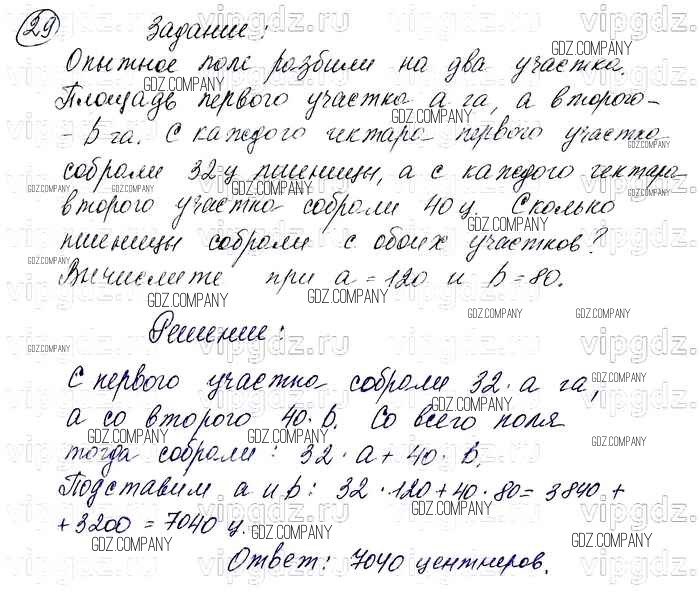 29 Задание:
Опытное поле разбили на два участка.
Площадь первого участка a га, а второго -
- b га. С каждого гектара первого участка
собрали 32 ц пшеницы, а с каждого гектара
второго участка собрали 40 ц. Сколько
пшеницы собрали с обоих участков?
Вычислите при a = 120 и b = 80.
Решение:
С первого участка собрали 32 · a га,
а со второго 40 · b. Со всего поля
тогда собрали: 32 · a + 40 · b.
Подставим a и b: 32 · 120 + 40 · 80 = 3840 +
+ 3200 = 7040 ц.
Ответ: 7040 центнеров.